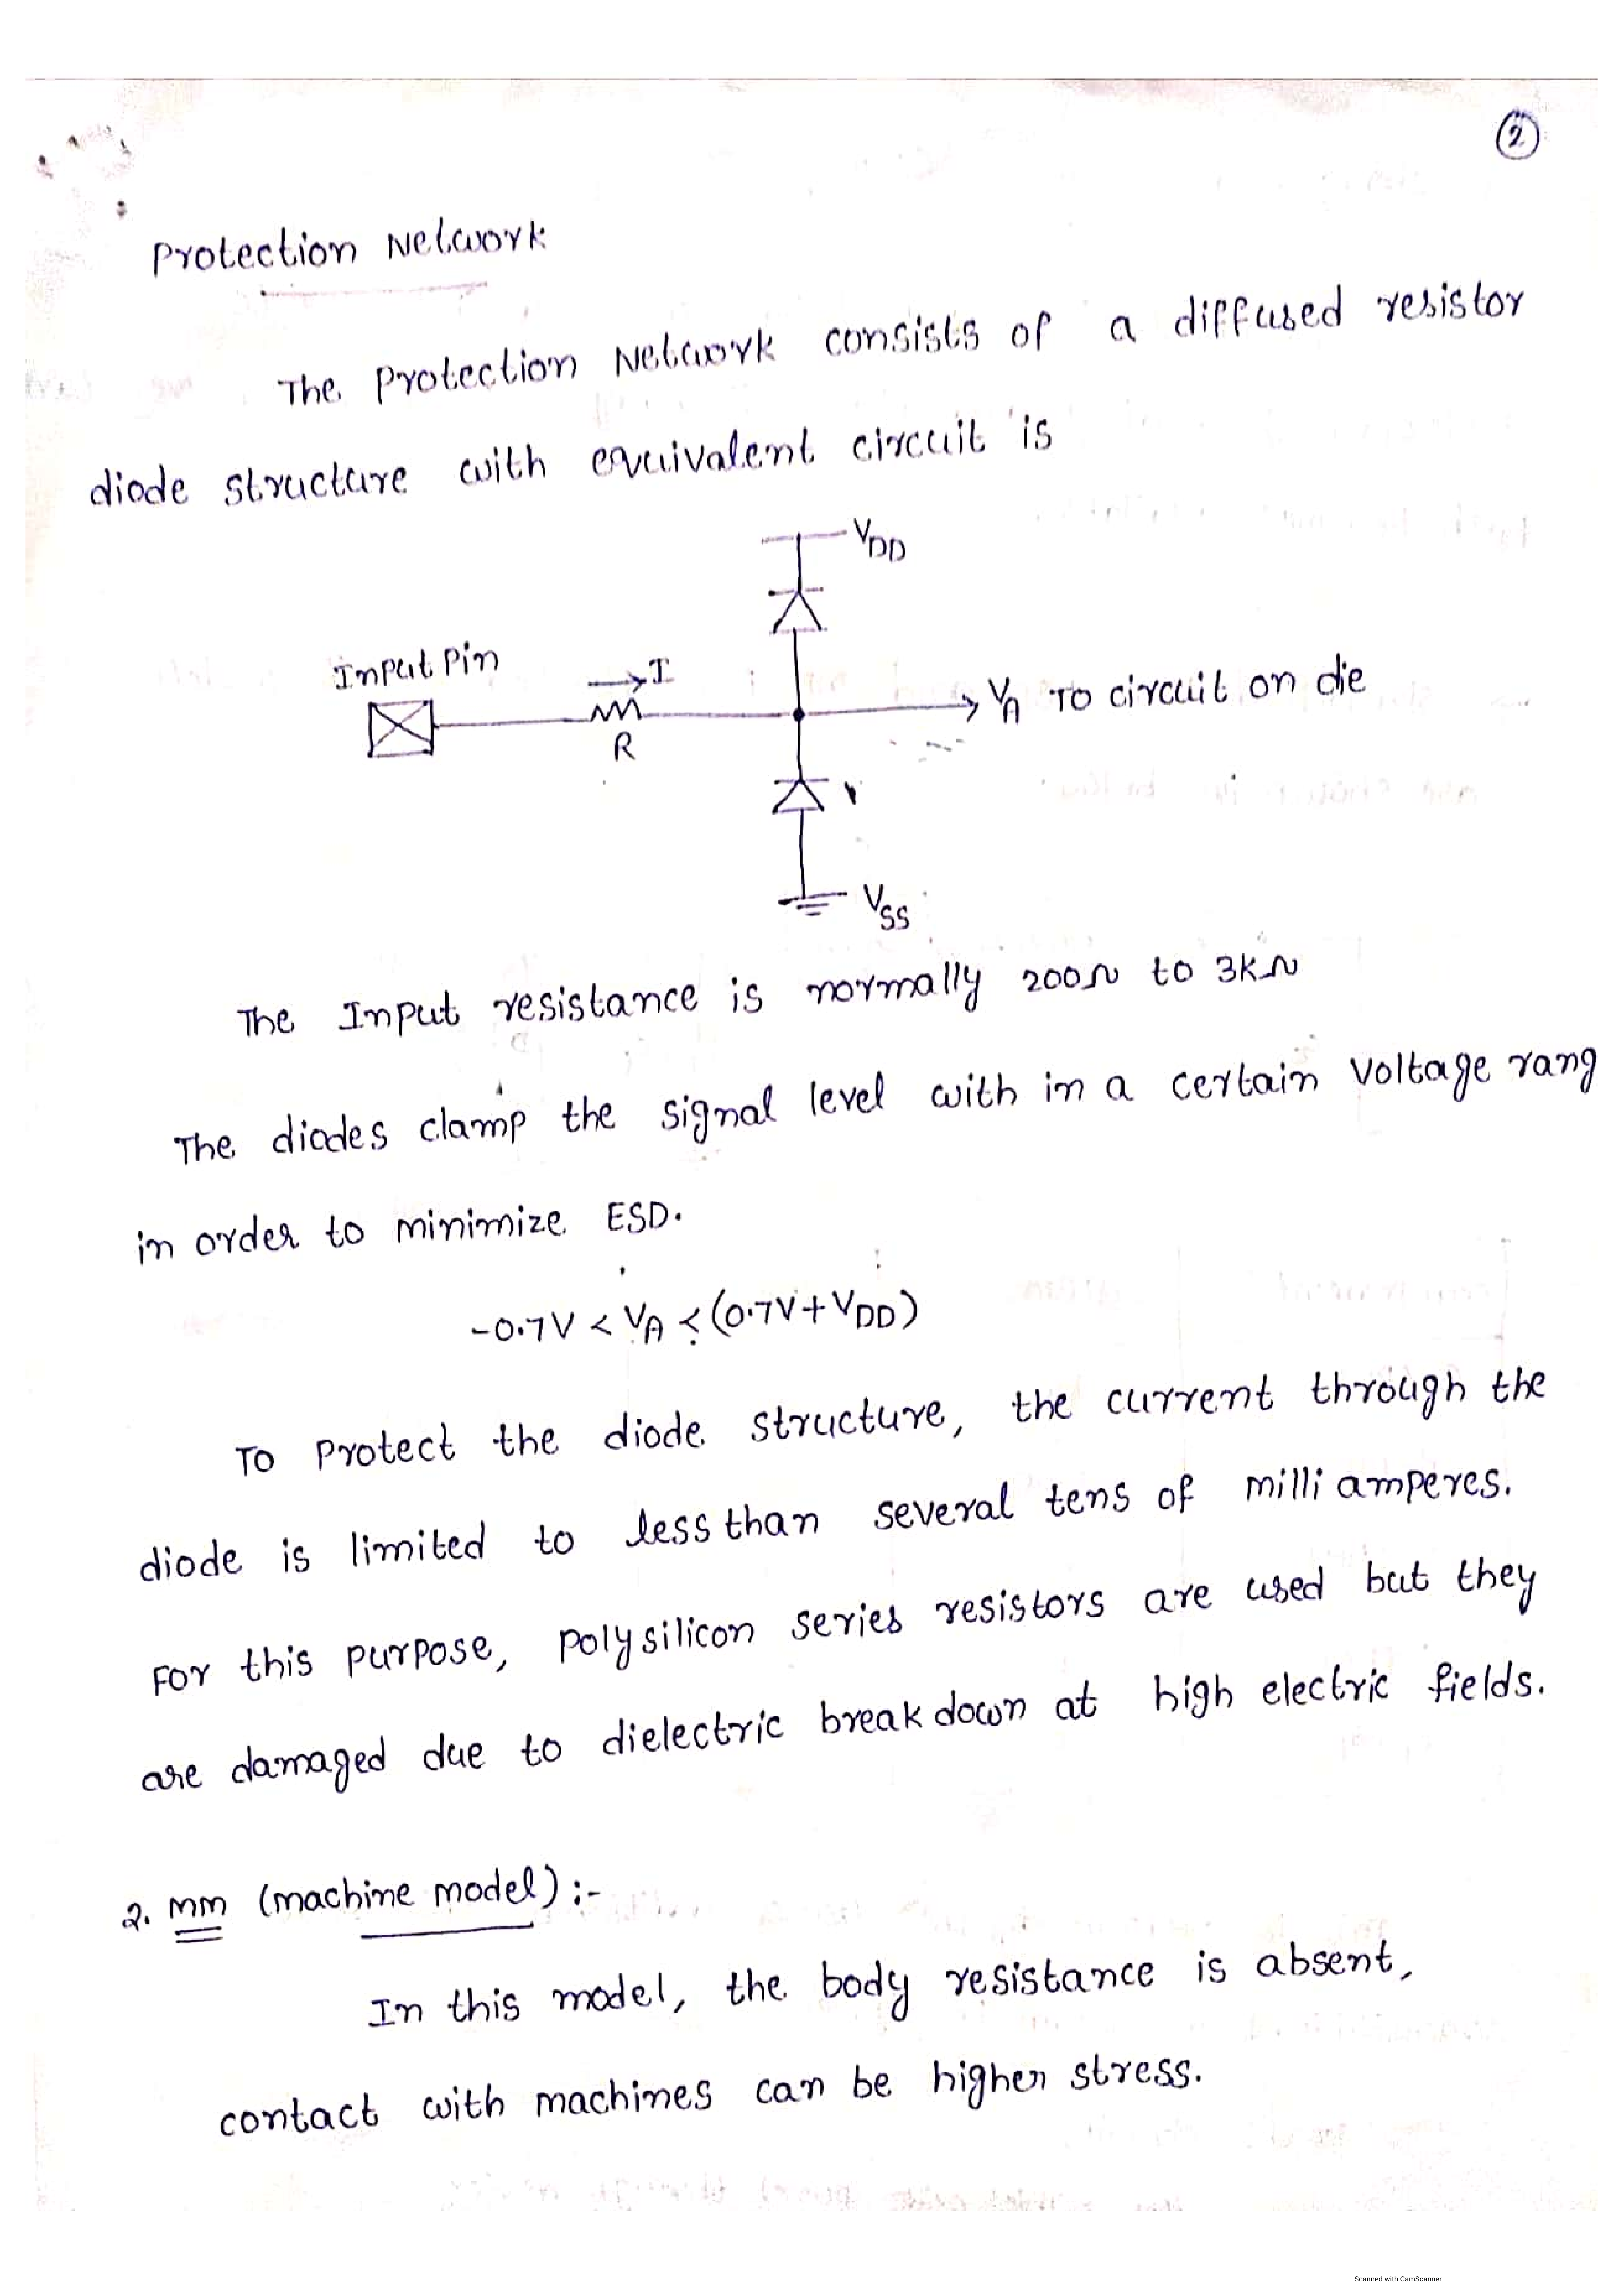 2
Protection Network
The Protection Network consists of a diffused resistor
diode structure with equivalent circuit is
VDD
Input Pin
I
R
VA To circuit on die
VSS
The Input resistance is normally 200Ω to 3KΩ
The diodes clamp the signal level with in a certain Voltage rang
in order to minimize ESD.
-0.7V < VA < (0.7V+VDD)
To Protect the diode structure, the current through the
diode is limited to less than several tens of milli amperes.
For this purpose, polysilicon series resistors are used but they
are damaged due to dielectric break down at high electric fields.
2. MM (machine model) :-
In this model, the body resistance is absent,
contact with machines can be higher stress.
Scanned with CamScanner